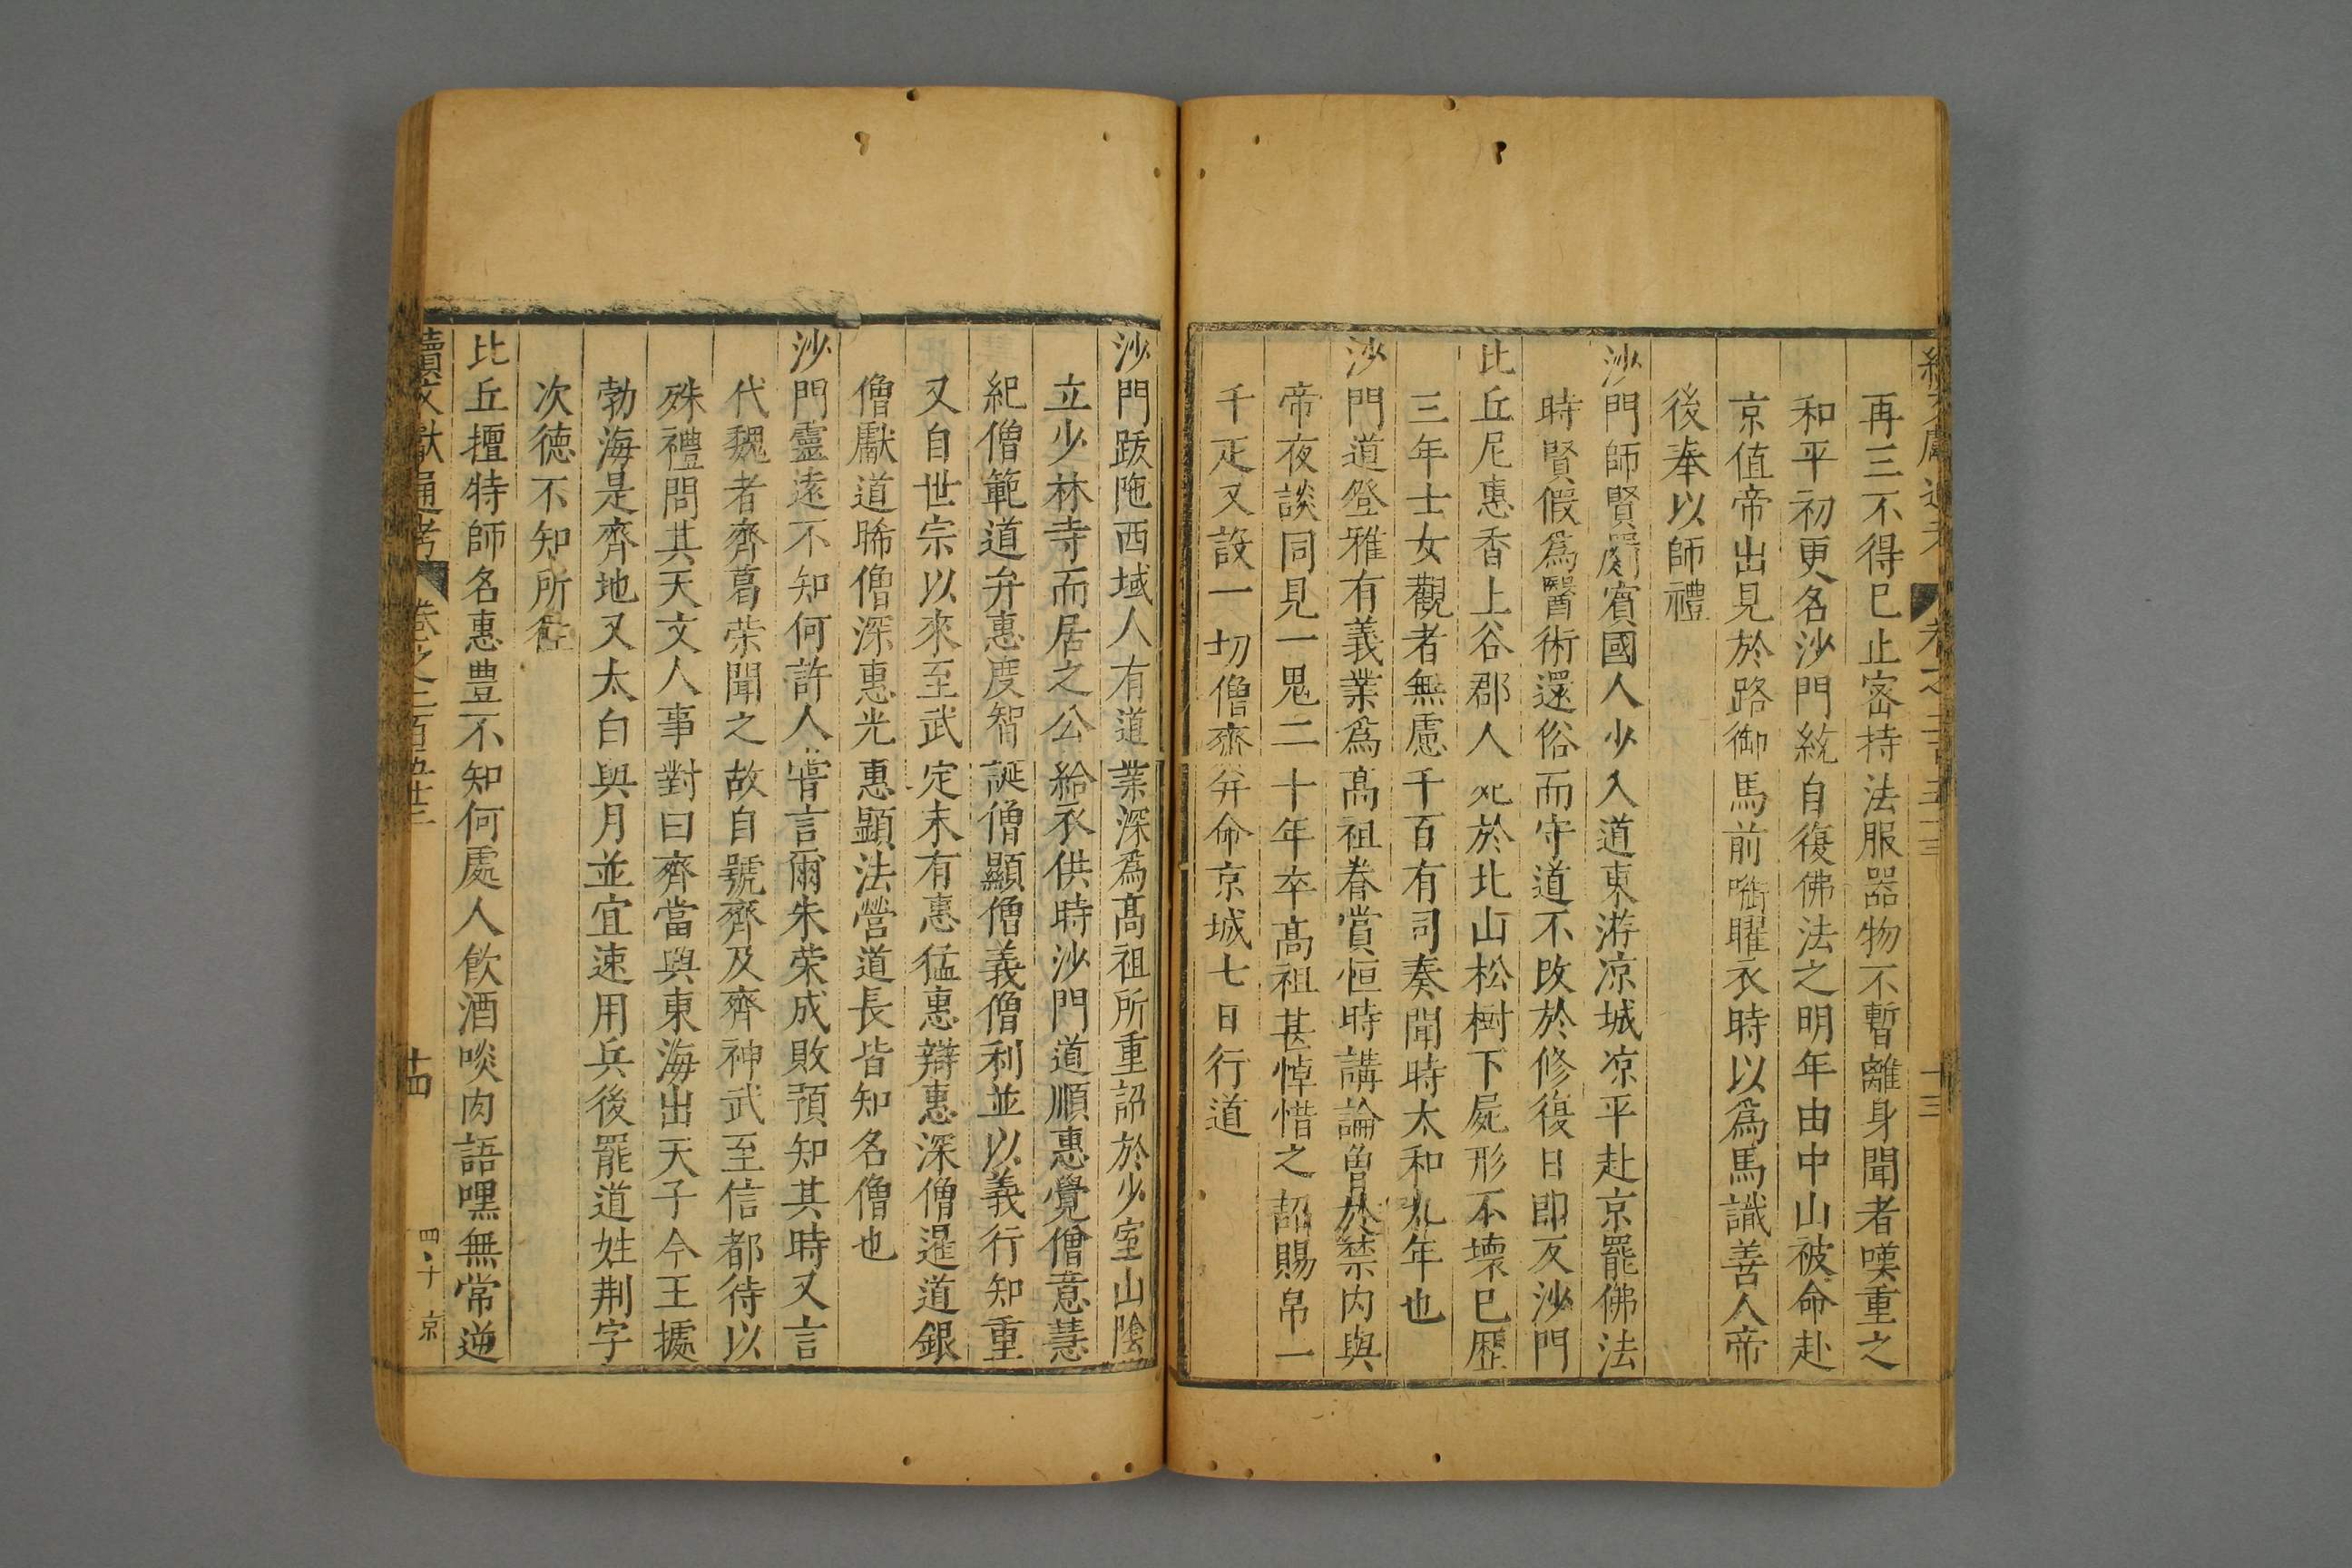 再三不得已止密持法服器物不暫離身聞者嘆重之
和平初更名沙門統自復佛法之明年由中山被命赴
京值帝出見於路御馬前啣曜衣時以爲馬識善人帝
後奉以師禮
沙門師賢罽賓國人少入道東游凉城凉平赴京罷佛法
時賢假爲醫術還俗而守道不改於修復日即反沙門
比丘尼惠香上谷郡人死於北山松樹下屍形不壞已歷
三年士女觀者無慮千百有司奏聞時太和九年也
沙門道登雅有義業爲髙祖眷賞恒時講論曾於禁内與
帝夜談同見一鬼二十年卒髙祖甚悼惜之詔賜帛一
千疋又設一切僧齋并命京城七日行道
沙門跋陁西域人有道業深爲髙祖所重詔於少室山陰
立少林寺而居之公給衣供時沙門道順惠覺僧意慧
紀僧範道弁惠度智誕僧顯僧義僧利並以義行知重
又自世宗以來至武定末有惠猛惠辯惠深僧暹道銀
僧獻道晞僧深惠光惠顯法營道長皆知名僧也
沙門靈遠不知何許人嘗言爾朱荣成敗預知其時又言
代魏者齊葛荣聞之故自號齊及齊神武至信都待以
殊禮問其天文人事對曰齊當興東海出天子今王據
勃海是齊地又太白與月並宜速用兵後罷道姓荆字
次徳不知所在
比丘擅特師名惠豊不知何處人飲酒啖肉語嘿無常逆
續文獻通考 卷之二百五十三 十四 四十 京